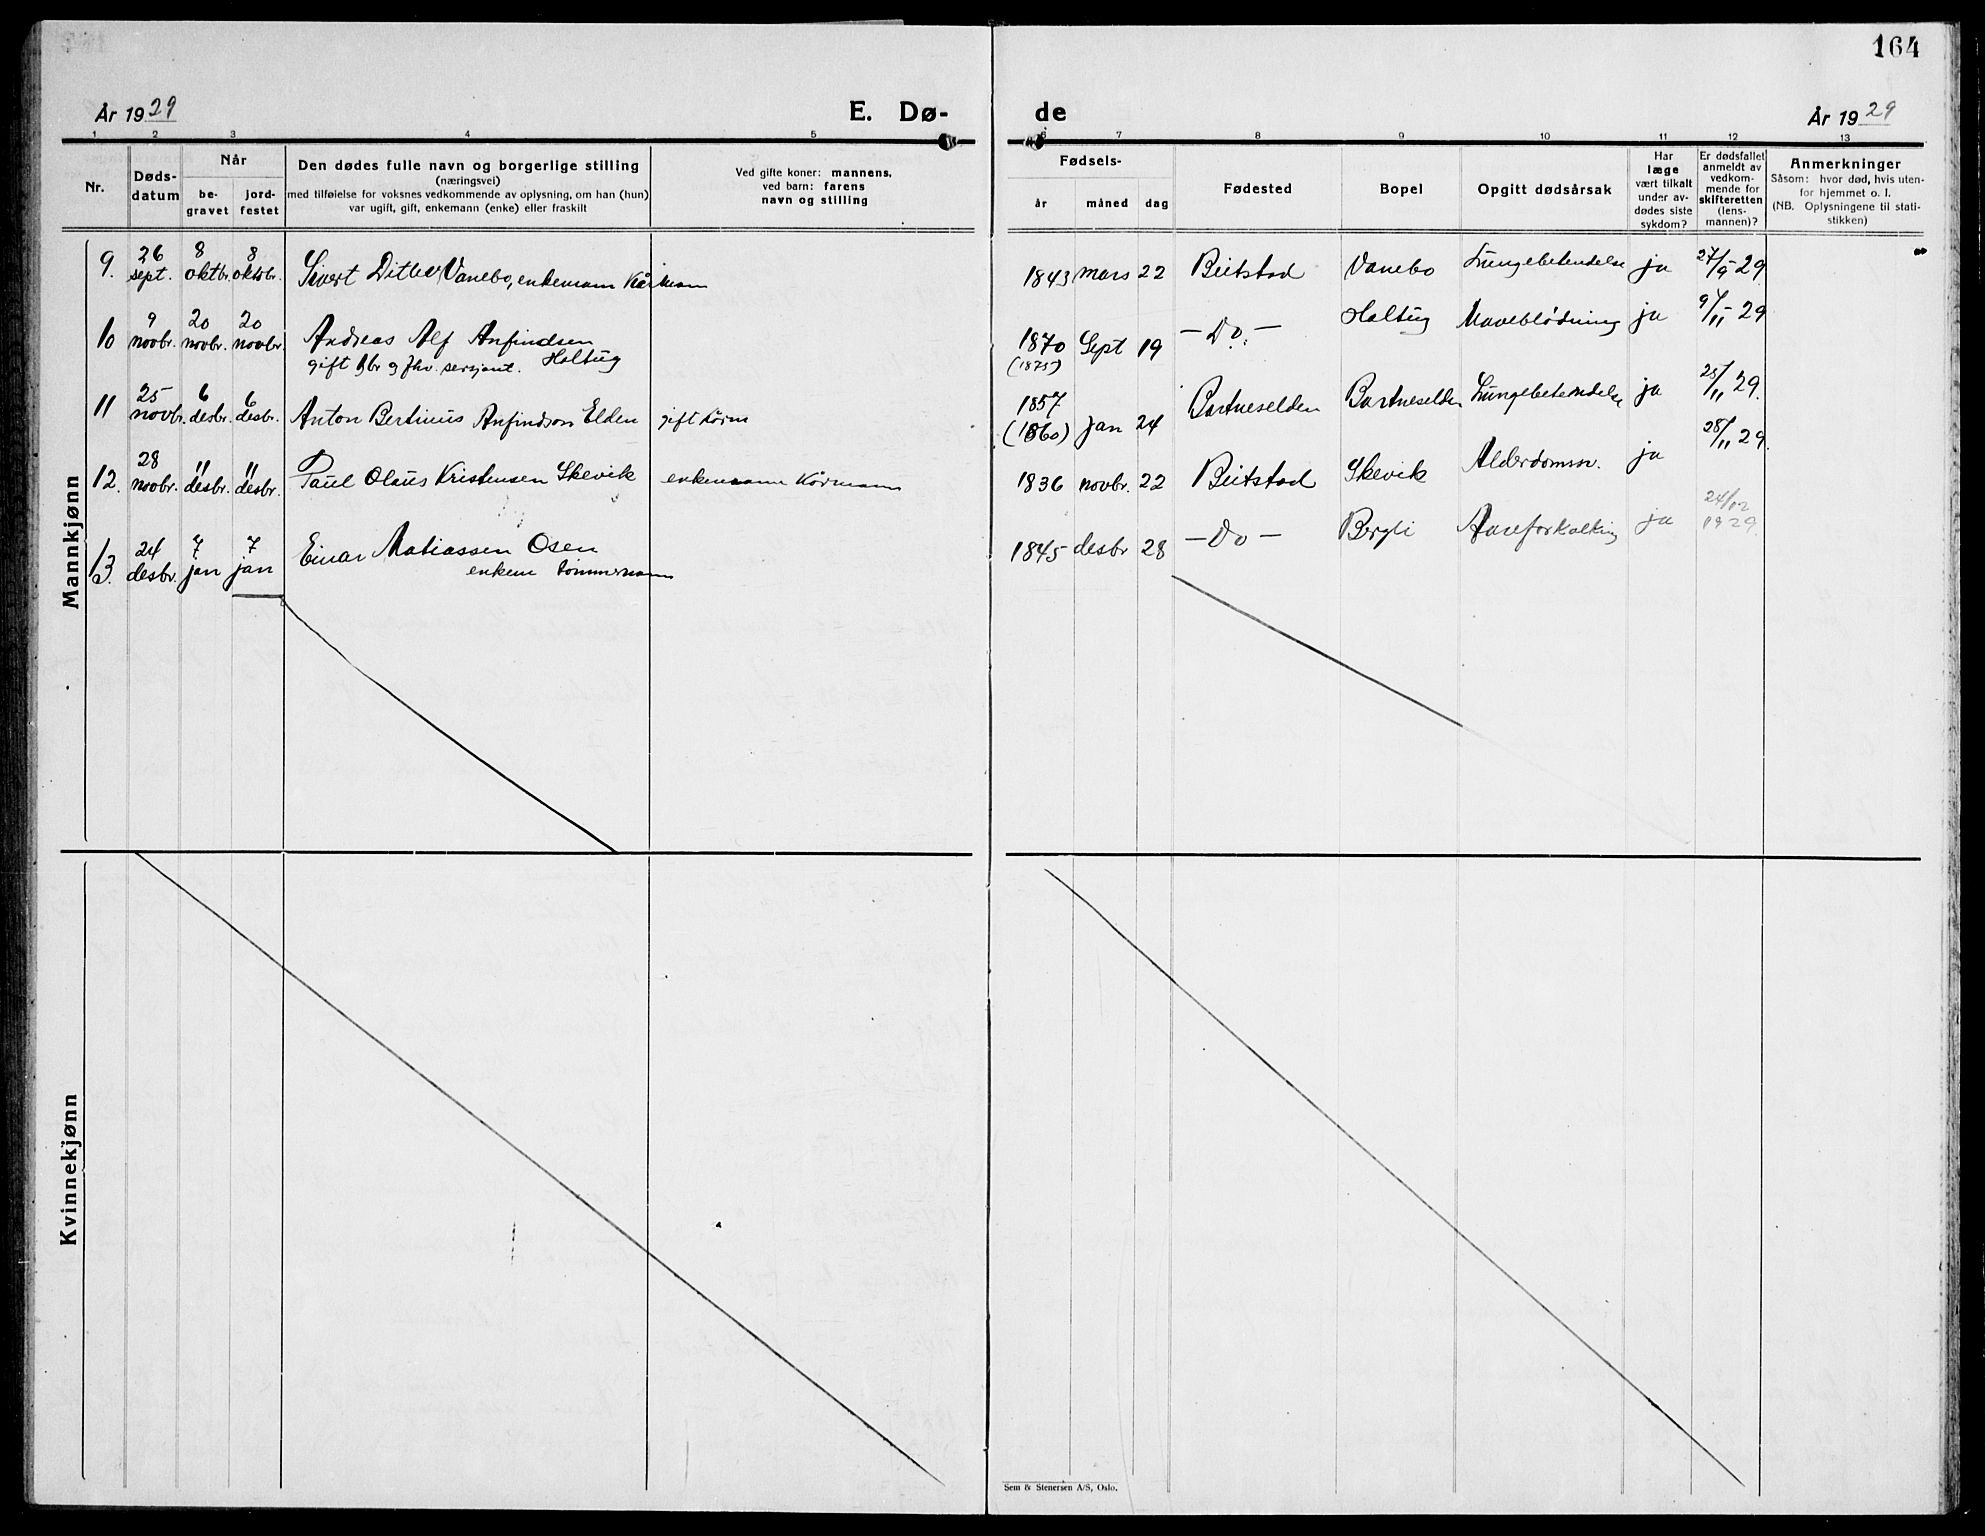 164
År 1929 E. Dø- de År 1929
1 2 3 4 5 6 7 8 9 10 11 12 13
Nr.
Døds-
datum
Når
be-
gravet
jord-
festet
Den dødes fulle navn og borgerlige stilling
(næringsvei)
med tilføielse for voksnes vedkommende av oplysning, om han (hun)
var ugift, gift, enkemann (enke) eller fraskilt
Ved gifte koner: mannens,
ved barn: farens
navn og stilling
Fødsels-
år måned dag
Fødested
Bopel
Opgitt dødsårsak
Har
læge
vært tilkalt
under av-
dødes siste
sykdom?
Er dødsfallet
anmeldt av
vedkom-
mende for
skifteretten
(lens-
mannen)?
Anmerkninger
Såsom: hvor død, hvis uten-
for hjemmet o. l.
(NB. Oplysningene til stati-
stikken)
Mannkjønn
9. 26 sept. 8 oktbr. 8 oktobr. Sivert Ditlev Vanebo, enkemann Kårmann 1843 mars 22 Beitstad Vanebo Lungebetendelse ja 27/9-29
10 9 novbr. 20 novbr. 20 novbr. Andreas Alf Anfindsen 1870 Sept 19 — Do — Holtug Maveblødning ja 9/11-29
gift gbr og fhv. sersjant. Holtug (1875)
11 25 novbr. 6 desbr. 6 desbr. Anton Bertinus Anfindson Elden gift kårm 1857 (1860) jan 24 Bartneselden Bartneselden Lungebetendelse ja 25/11 29.
12. 28 novbr. " desbr. " desbr. Paul Olaus Kristensen Skevik enkemann Kårmann 1836 novbr. 22 Beitstad Skevik Alderdomssv. ja 28/11 29.
13. 24 desbr. 7 jan 7 jan Einar Matiassen Osen 1845 desbr 28 — Do — Bergli Aareforkalkning ja 24/12 1929
enkem tømmermann
Kvinnekjønn
Sem & Stenersen A/S, Oslo.